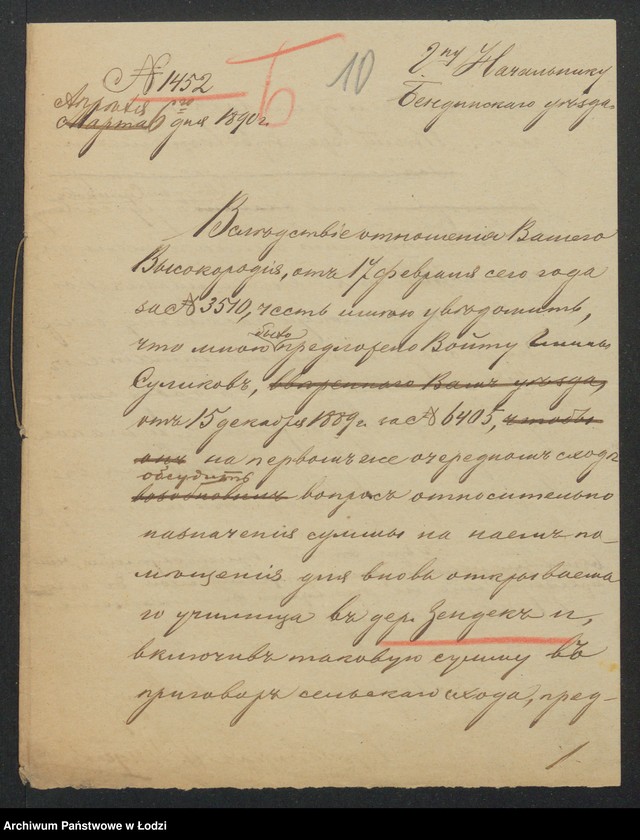 № 1452
Б
10
Г. ну Начальнику
Апреля
Марта 6 го дня 1890 г.
Бендинскаго уѣзда.
Вслѣдствіе отношенія Вашего
Высокородія, отъ 17 февраля сего года
за № 3510, честь имѣю увѣдомить,
было
что мною предложено Войту Гмины
Суликовъ, ввѣреннаго Вамъ уѣзда,
отъ 15 декабря 1889 г. за № 6405, чтобы
онъ на первомъ же очередномъ сходѣ
обсудить
возобновилъ вопросъ относительно
назначенія суммы на наемъ по-
мѣщенія для вновь открываема
го училища въ дер. Зендекъ и,
включивъ таковую сумму въ
приговоръ сельскаго схода, пред-
1.
Archiwum Państwowe w Łodzi